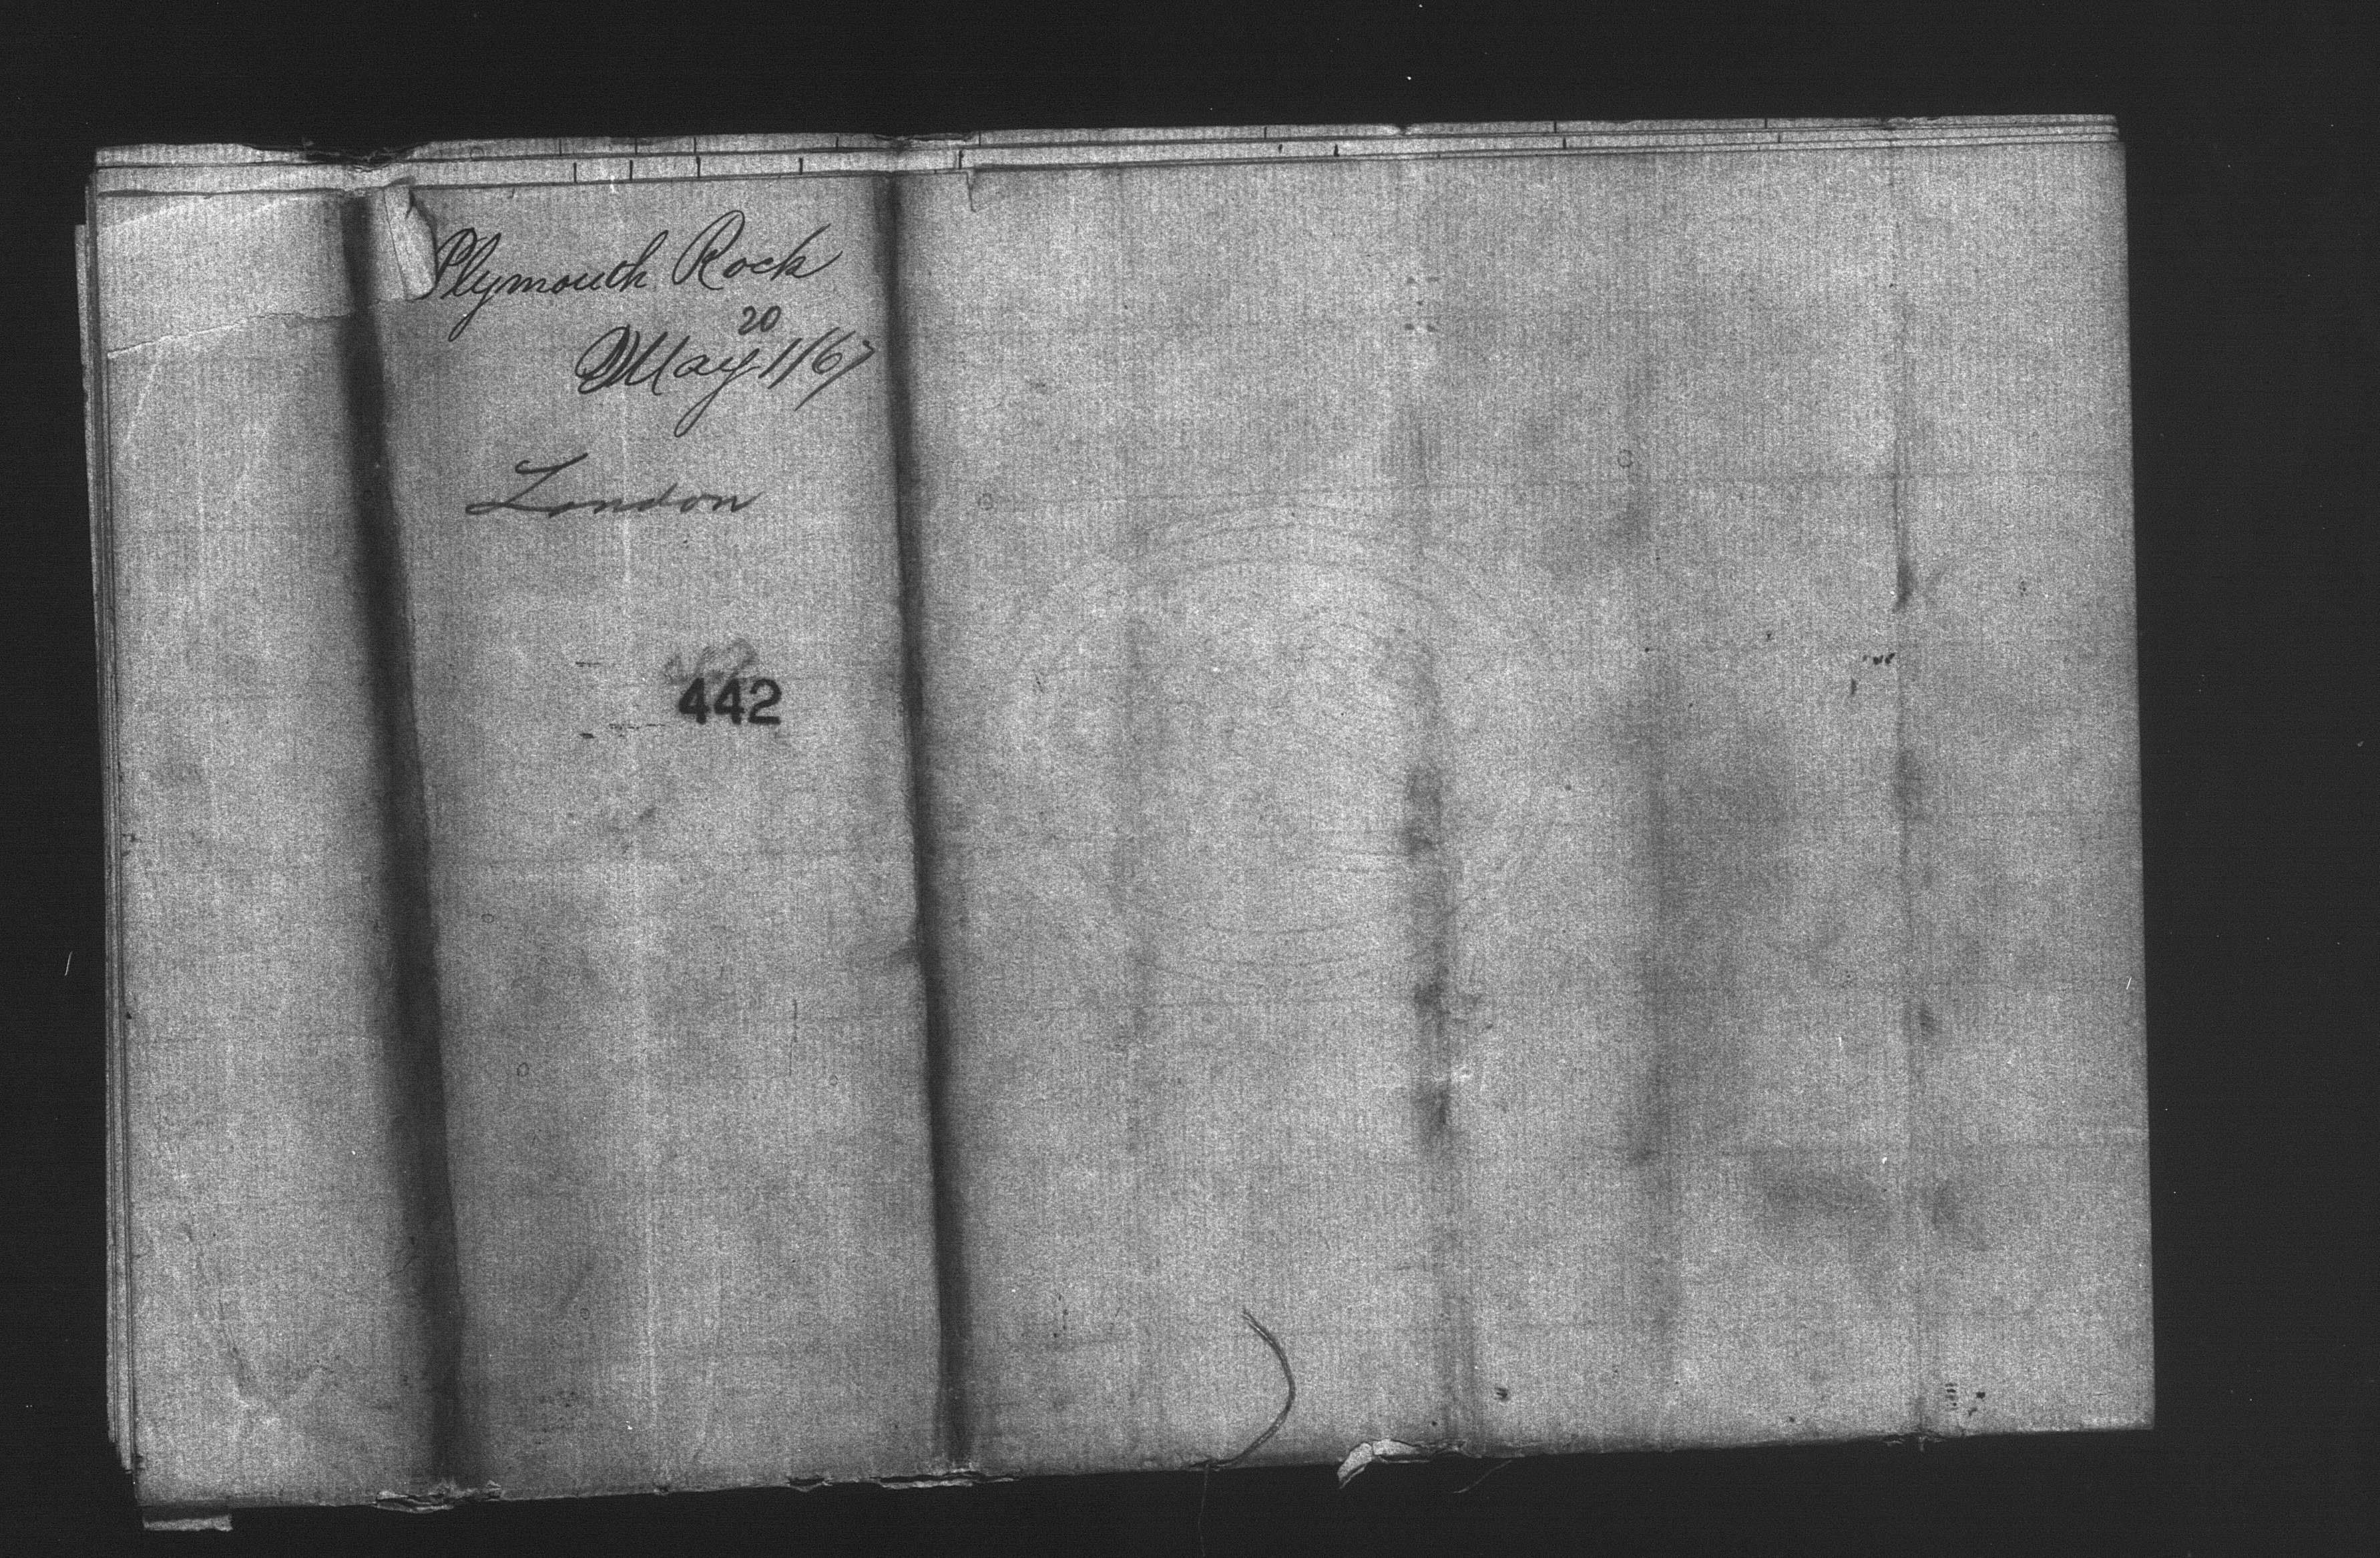 Plymouth Rock
May 20 1/67
London
442